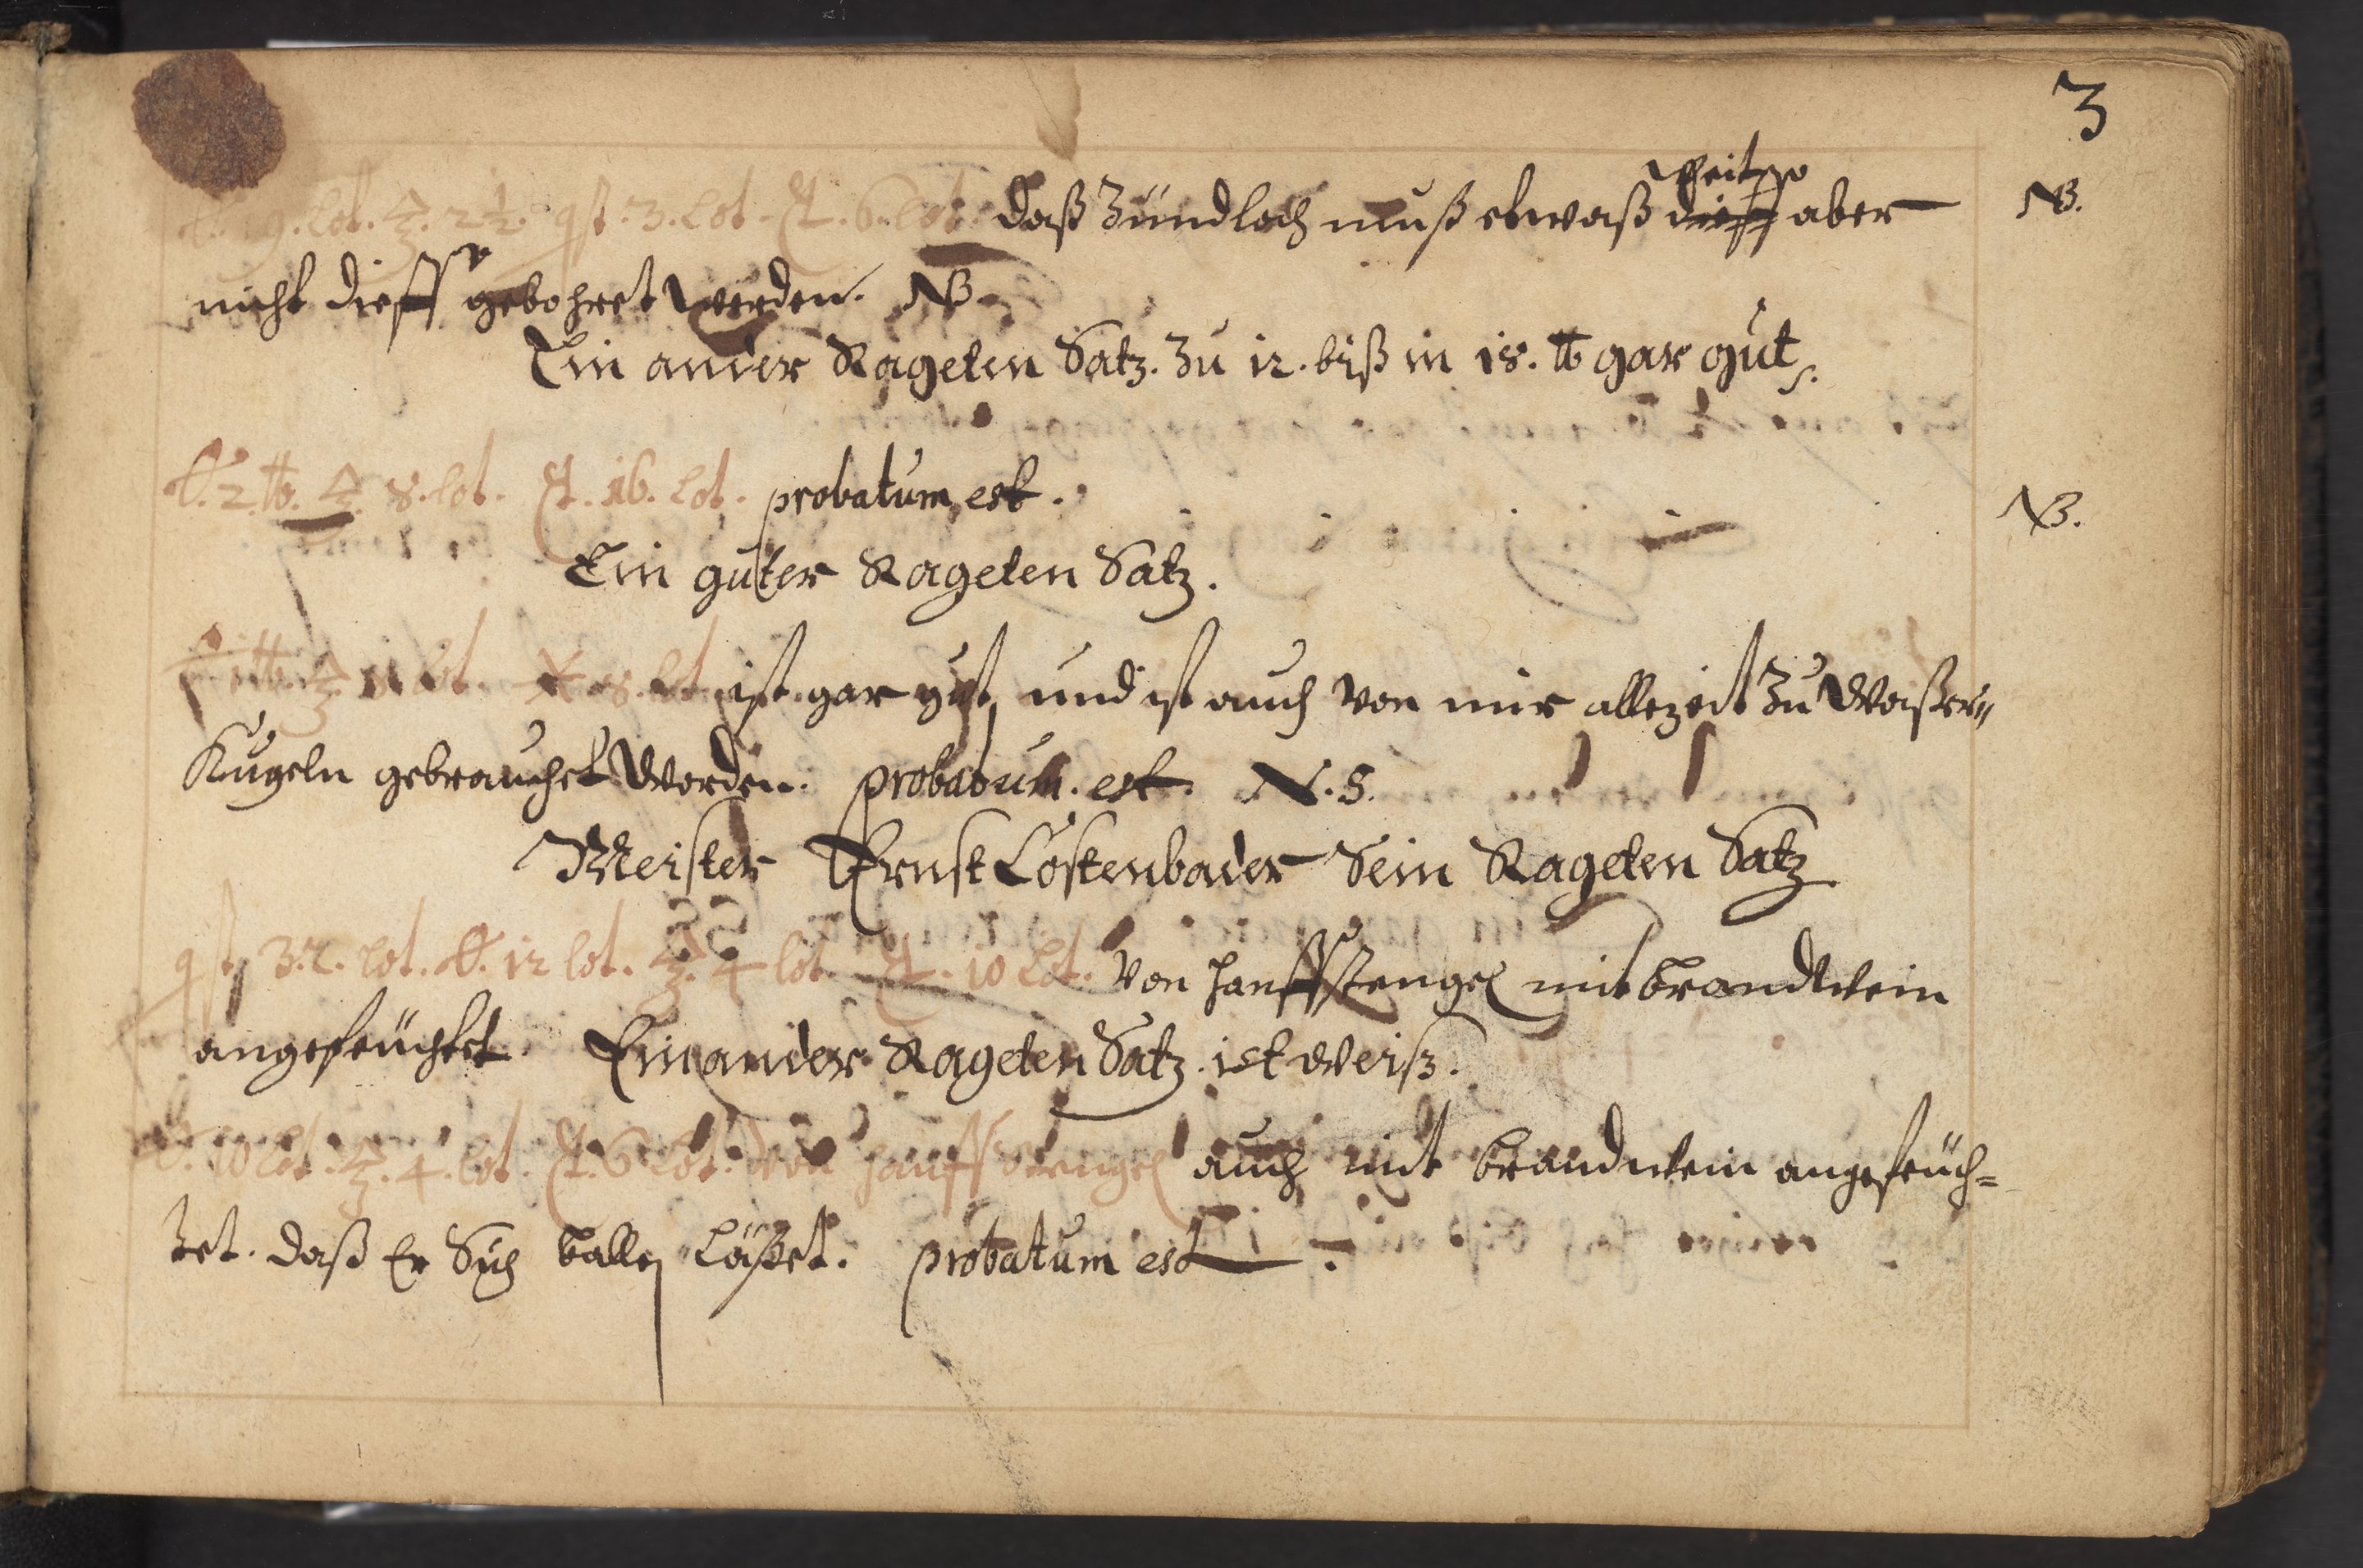 3
weit
9. lot. 2½. 3. lot. 6. lot. daß Zündloch muß etwaß dieff aber NB.
nicht dieff gebohret werden. NB.
Ein ander Rageten Satz. Zu 12. biß in 18. ℔ gar gut
2 ℔. 8. lot. 16. lot. probatum est. NB.
Ein guter Rageten Satz.
8. lot ist gar gut und ist auch von mir allezeit Zu Waßer„
Kugeln gebrauchet worden. probatum est. N. S.
Meister Ernst Costenbader Sein Rageten Satz
32. lot. 12 lot. 4 lot. 10 lot. von hanffstengel mit brandwein
angefeuchtet. Ein ander Rageten Satz. ist weiß.
10 lot. 4. lot. 6 lot. von hanffstengel auch mit brandwein angefeüch=
tet. daß Er Sich ballen läßet. probatum est.